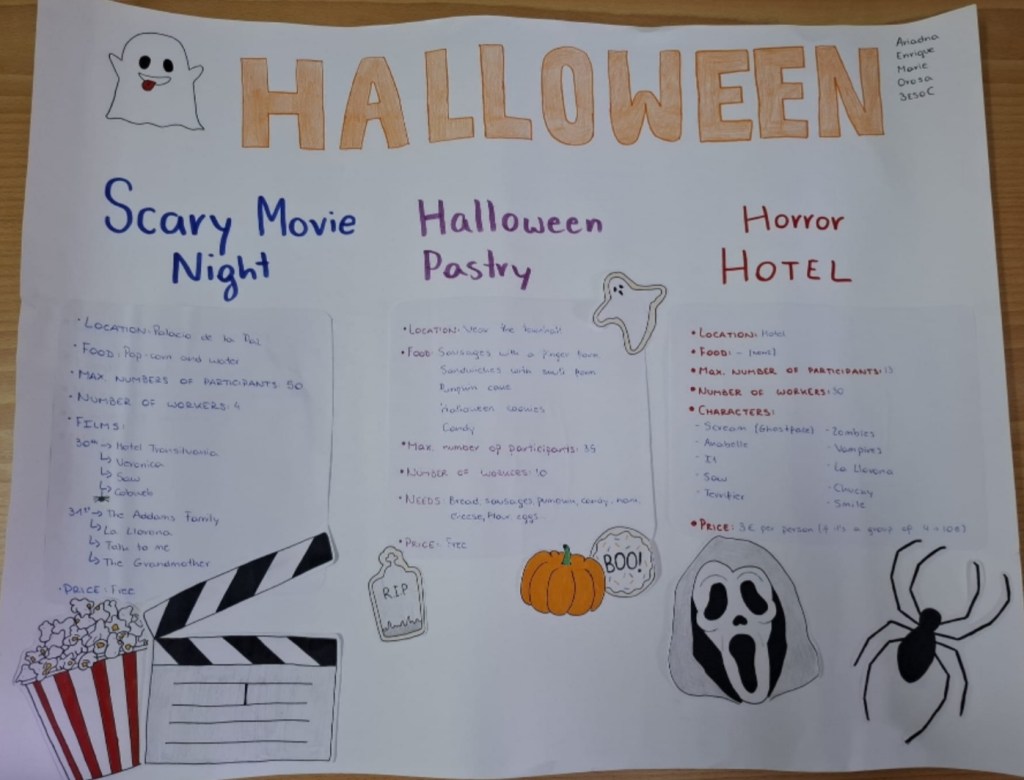 HALLOWEEN
Ariadna
Enrique
Marie
3ESOC
SCARY MOVIE
Night
• LOCATION: Palacio de la Paz
• FOOD: Pop-corn and water
• MAX. NUMBERS OF PARTICIPANTS: 50
• NUMBER OF WORKERS: 4
• FILMS:
30th → Hotel Transilvania
↳ Veronica
↳ Saw
↳ Cobweb
31st → The Addams Family
↳ La Llorona
↳ Talk to me
↳ The Grandmother
• PRICE: Free
Halloween
Pastry
• LOCATION: Near the townhall
• FOOD: Sausages with a finger form
Sandwiches with form
cake
Halloween cookies
Candy
• Max. number of participants: 35
• NUMBER OF WORKERS: 10
• NEEDS: Bread, sausages, candy, ham,
eggs...
• PRICE: Free
RIP
BOO!
Horror
HOTEL
• LOCATION: Hotel
• FOOD: - (none)
• MAX. NUMBER OF PARTICIPANTS: 13
• NUMBER OF WORKERS: 30
• CHARACTERS:
- Scream (Ghostface)
- Anabelle
- It
- Saw
- Terrifier
- Zombies
- Vampires
- La Llorona
- Chucky
- Smile
• PRICE: 3€ per person (if it's a group of 4 → 10€)